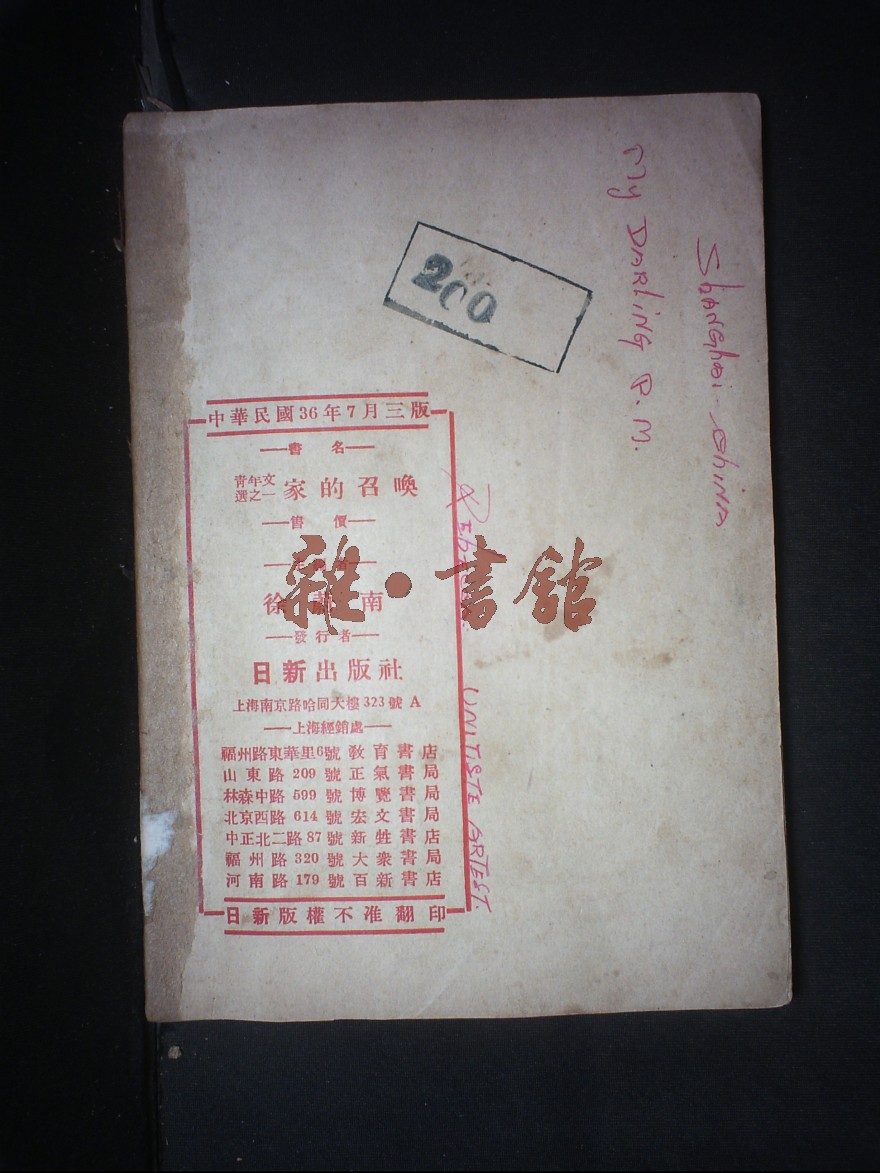 Shanghai China
My DARLiNG P.M.
200
中華民國36年7月三版
書名
青年文選之一 家的召喚
售價
徐 南
發行者
日新出版社
上海南京路哈同大樓323號 A
上海經銷處
福州路東華里6號 教育書店
山東路 209 號 正氣書局
林森中路 599 號 博覽書局
北京西路 614 號 宏文書局
中正北二路 87 號 新甡書店
福州路 320 號 大衆書局
河南路 179 號 百新書店
日新版權不准翻印
UNITISTE ARTEST.
雜·書館